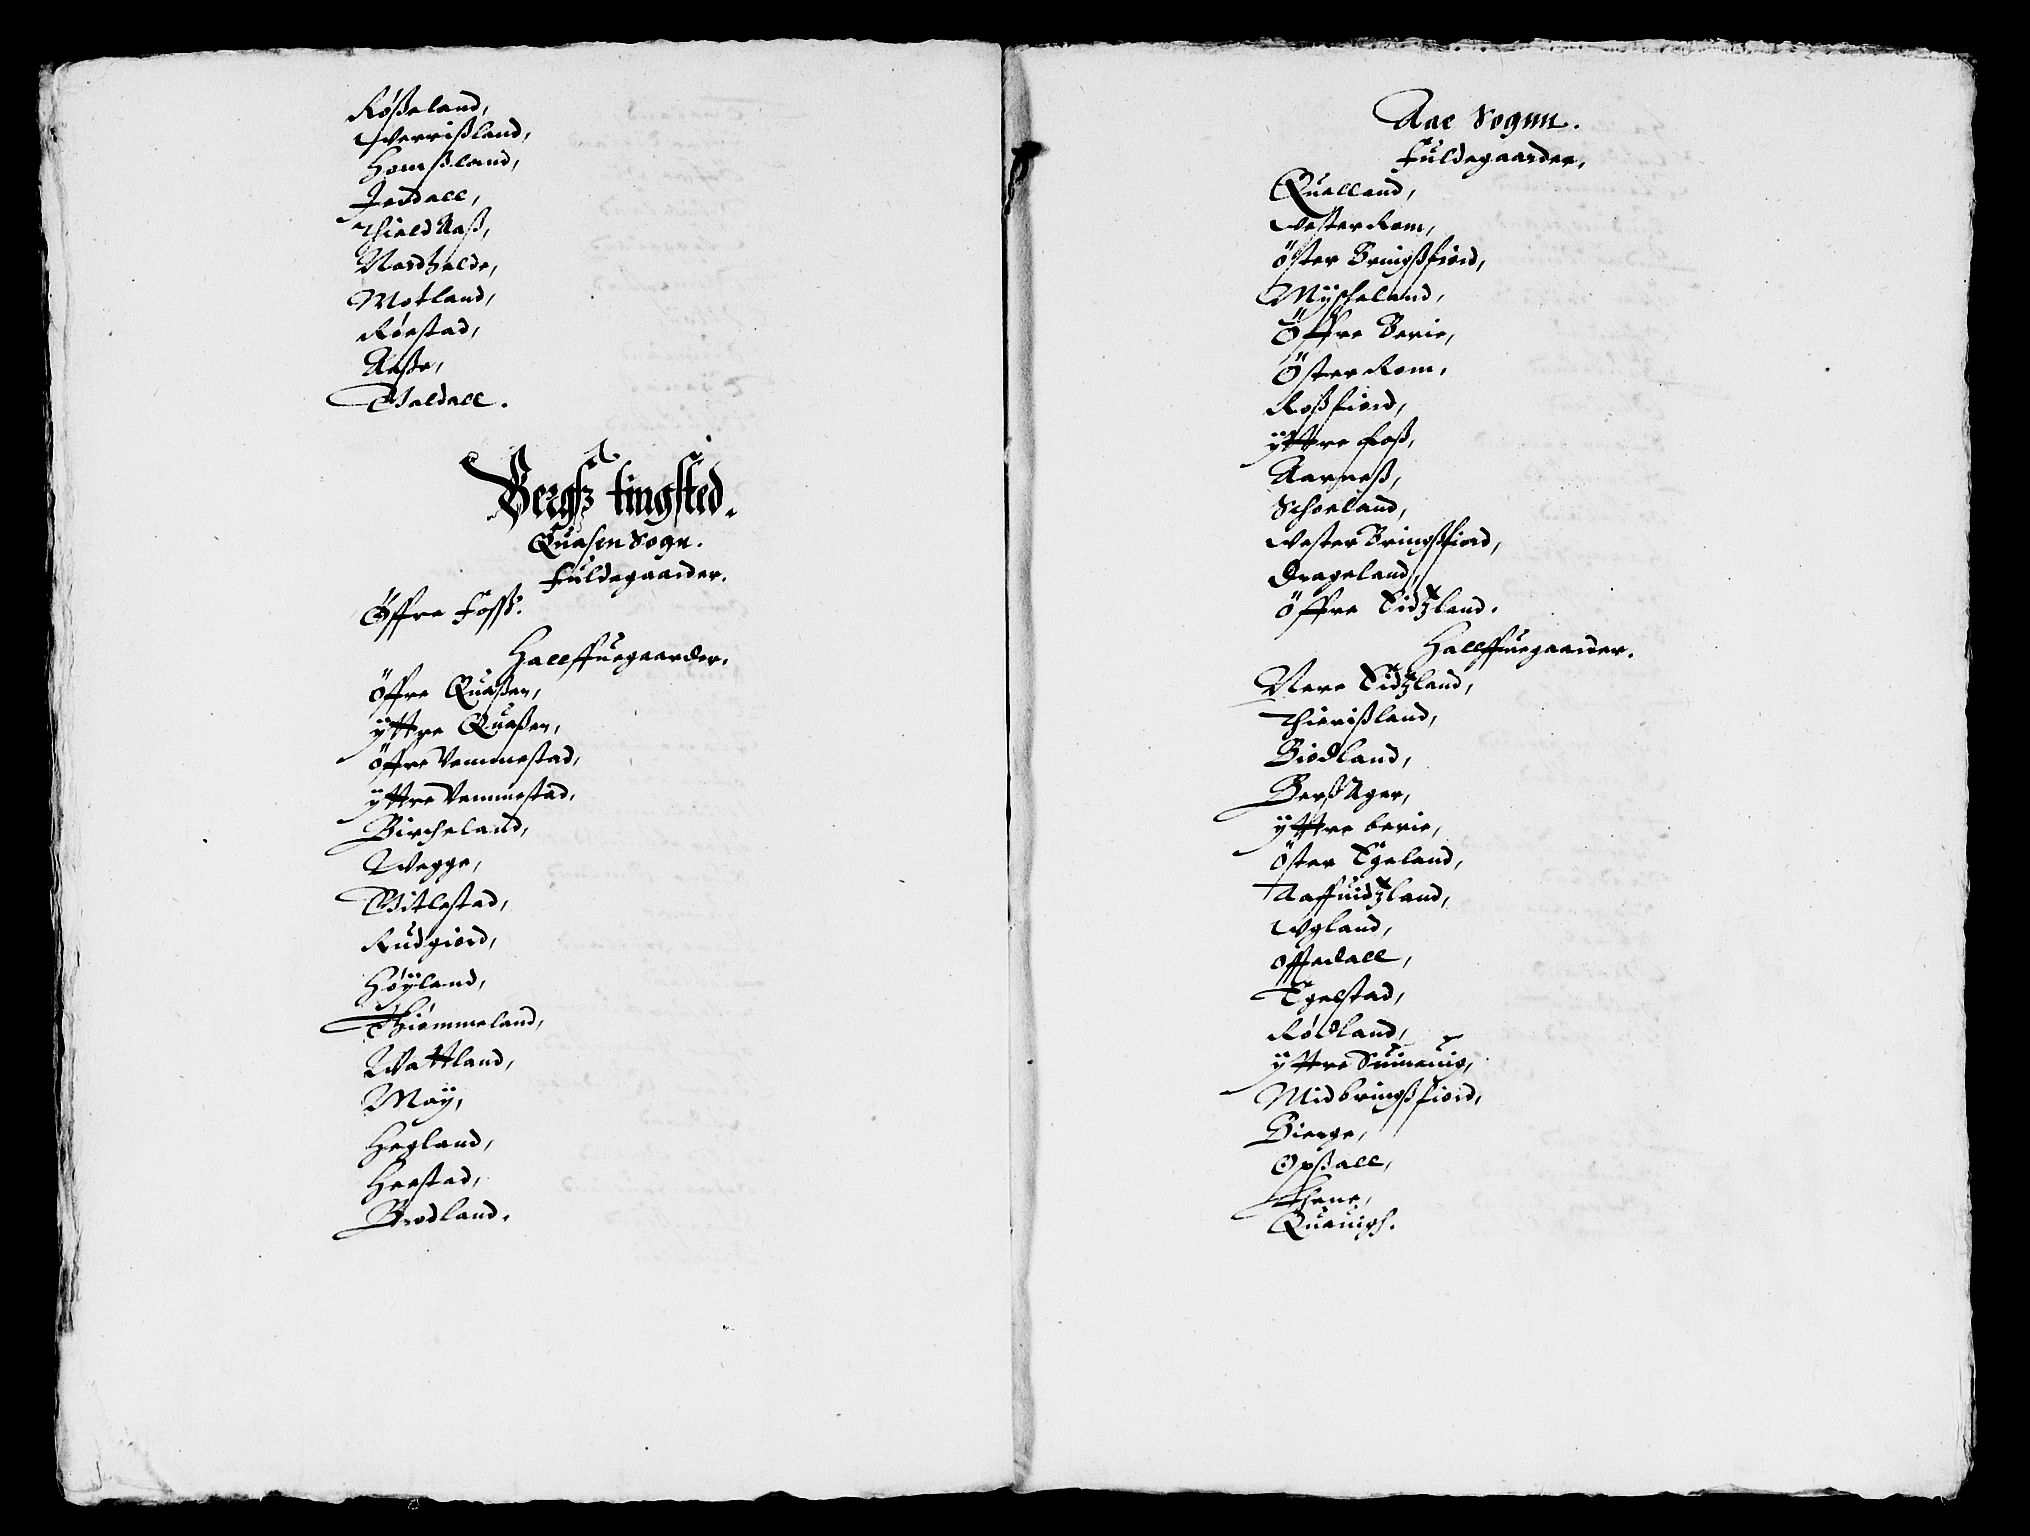 Røßeland,
Werrißland,
Homßland,
Jerdall,
Thield Aaß,
Nordhelde,
Motland,
Røestad,
Aaße,
Thaldall.
Bergß tingsted.
Quasen Sogn.
Fuldegaarder.
Öffre Foss.
Hallffuegaarder.
Öffre Quaßen,
ÿttre Quaßen,
Öffre Vemmestad,
ÿttre Vemmestad,
Bircheland,
Wegge,
Titlestad,
Rudgiord,
Høÿland,
Thiømmeland,
Wattland,
Møÿ,
Hegland,
Herstad,
Brodland.
Aae Sognn.
Fuldegaarder.
Quelland,
Vester Rom,
Öster Bringßfiord,
Mÿscheland,
Öffre Berie,
Öster Rom,
Roßfiord,
ÿttre Foß,
Aarneß,
Schoeland,
Vester Bringßfiord,
Drageland,
Öffre Eidtzland.
Hallffuegaarder.
Nere Eidtzland,
Thierißland,
Biodland,
Berß Ager,
ÿttre berie,
Öster Egeland,
Aaffuidtzland,
Wgland,
Offedall,
Egelstad,
Rødland,
ÿttre Suineuig,
Midbringßfiord,
Bierge,
Opßall,
Thene,
Quauigh.